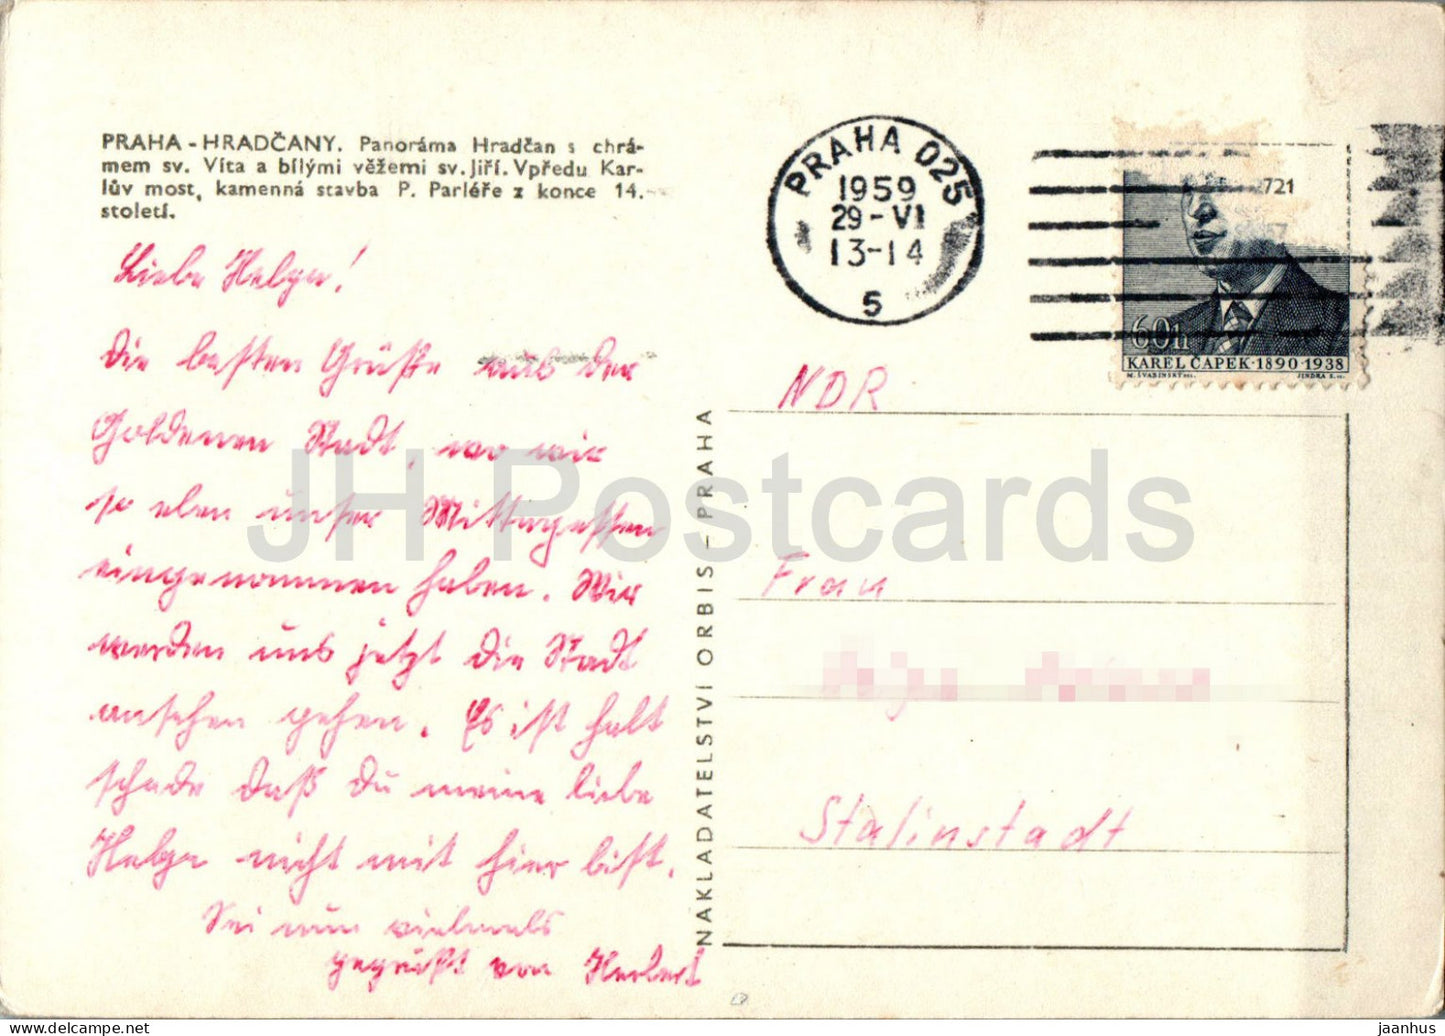 PRAHA - HRADČANY. Panoráma Hradčan s chrá-
mem sv. Víta a bílými věžemi sv. Jiří. Vpředu Kar-
lův most, kamenná stavba P. Parléře z konce 14.
století.
Liebe Helga!
Die besten Grüße aus der
Goldenen Stadt, wo wir
so eben unser Mittagessen
eingenommen haben. Wir
werden uns jetzt die Stadt
ansehen gehen. Es ist halt
schade daß Du meine liebe
Helga nicht mit hier bist.
Sei nun vielmals
gegrüßt von Herbert
NAKLADATELSTVÍ ORBIS - PRAHA
PRAHA 025
1959
29-VI
13-14
5
721
60h
KAREL ČAPEK·1890·1938
M. ŠVABINSKÝ DEL.
JINDRA S. SC.
NDR
Frau
Stalinstadt
JH Postcards
jaanhus | https://jhpostcards.com